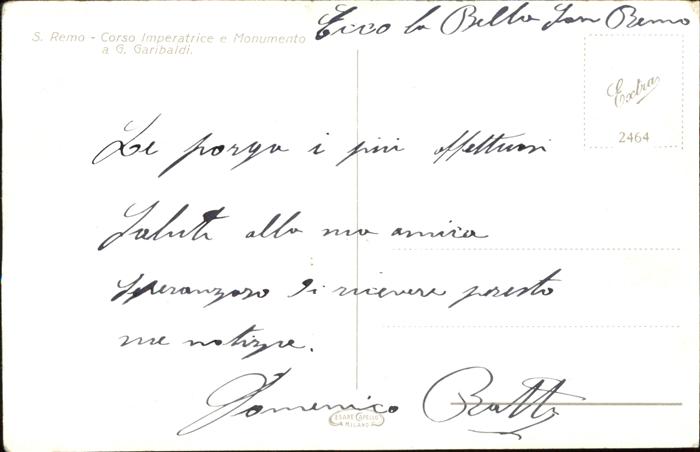 Ecco la Bella San Remo
S. Remo - Corso Imperatrice e Monumento
a G. Garibaldi.
Extra
2464
Le porgo i più affettuosi
Saluti alla mia amica
Speranzoso di ricevere presto
sue notizie.
Domenico Ratti
CESARE CAPELLO
MILANO